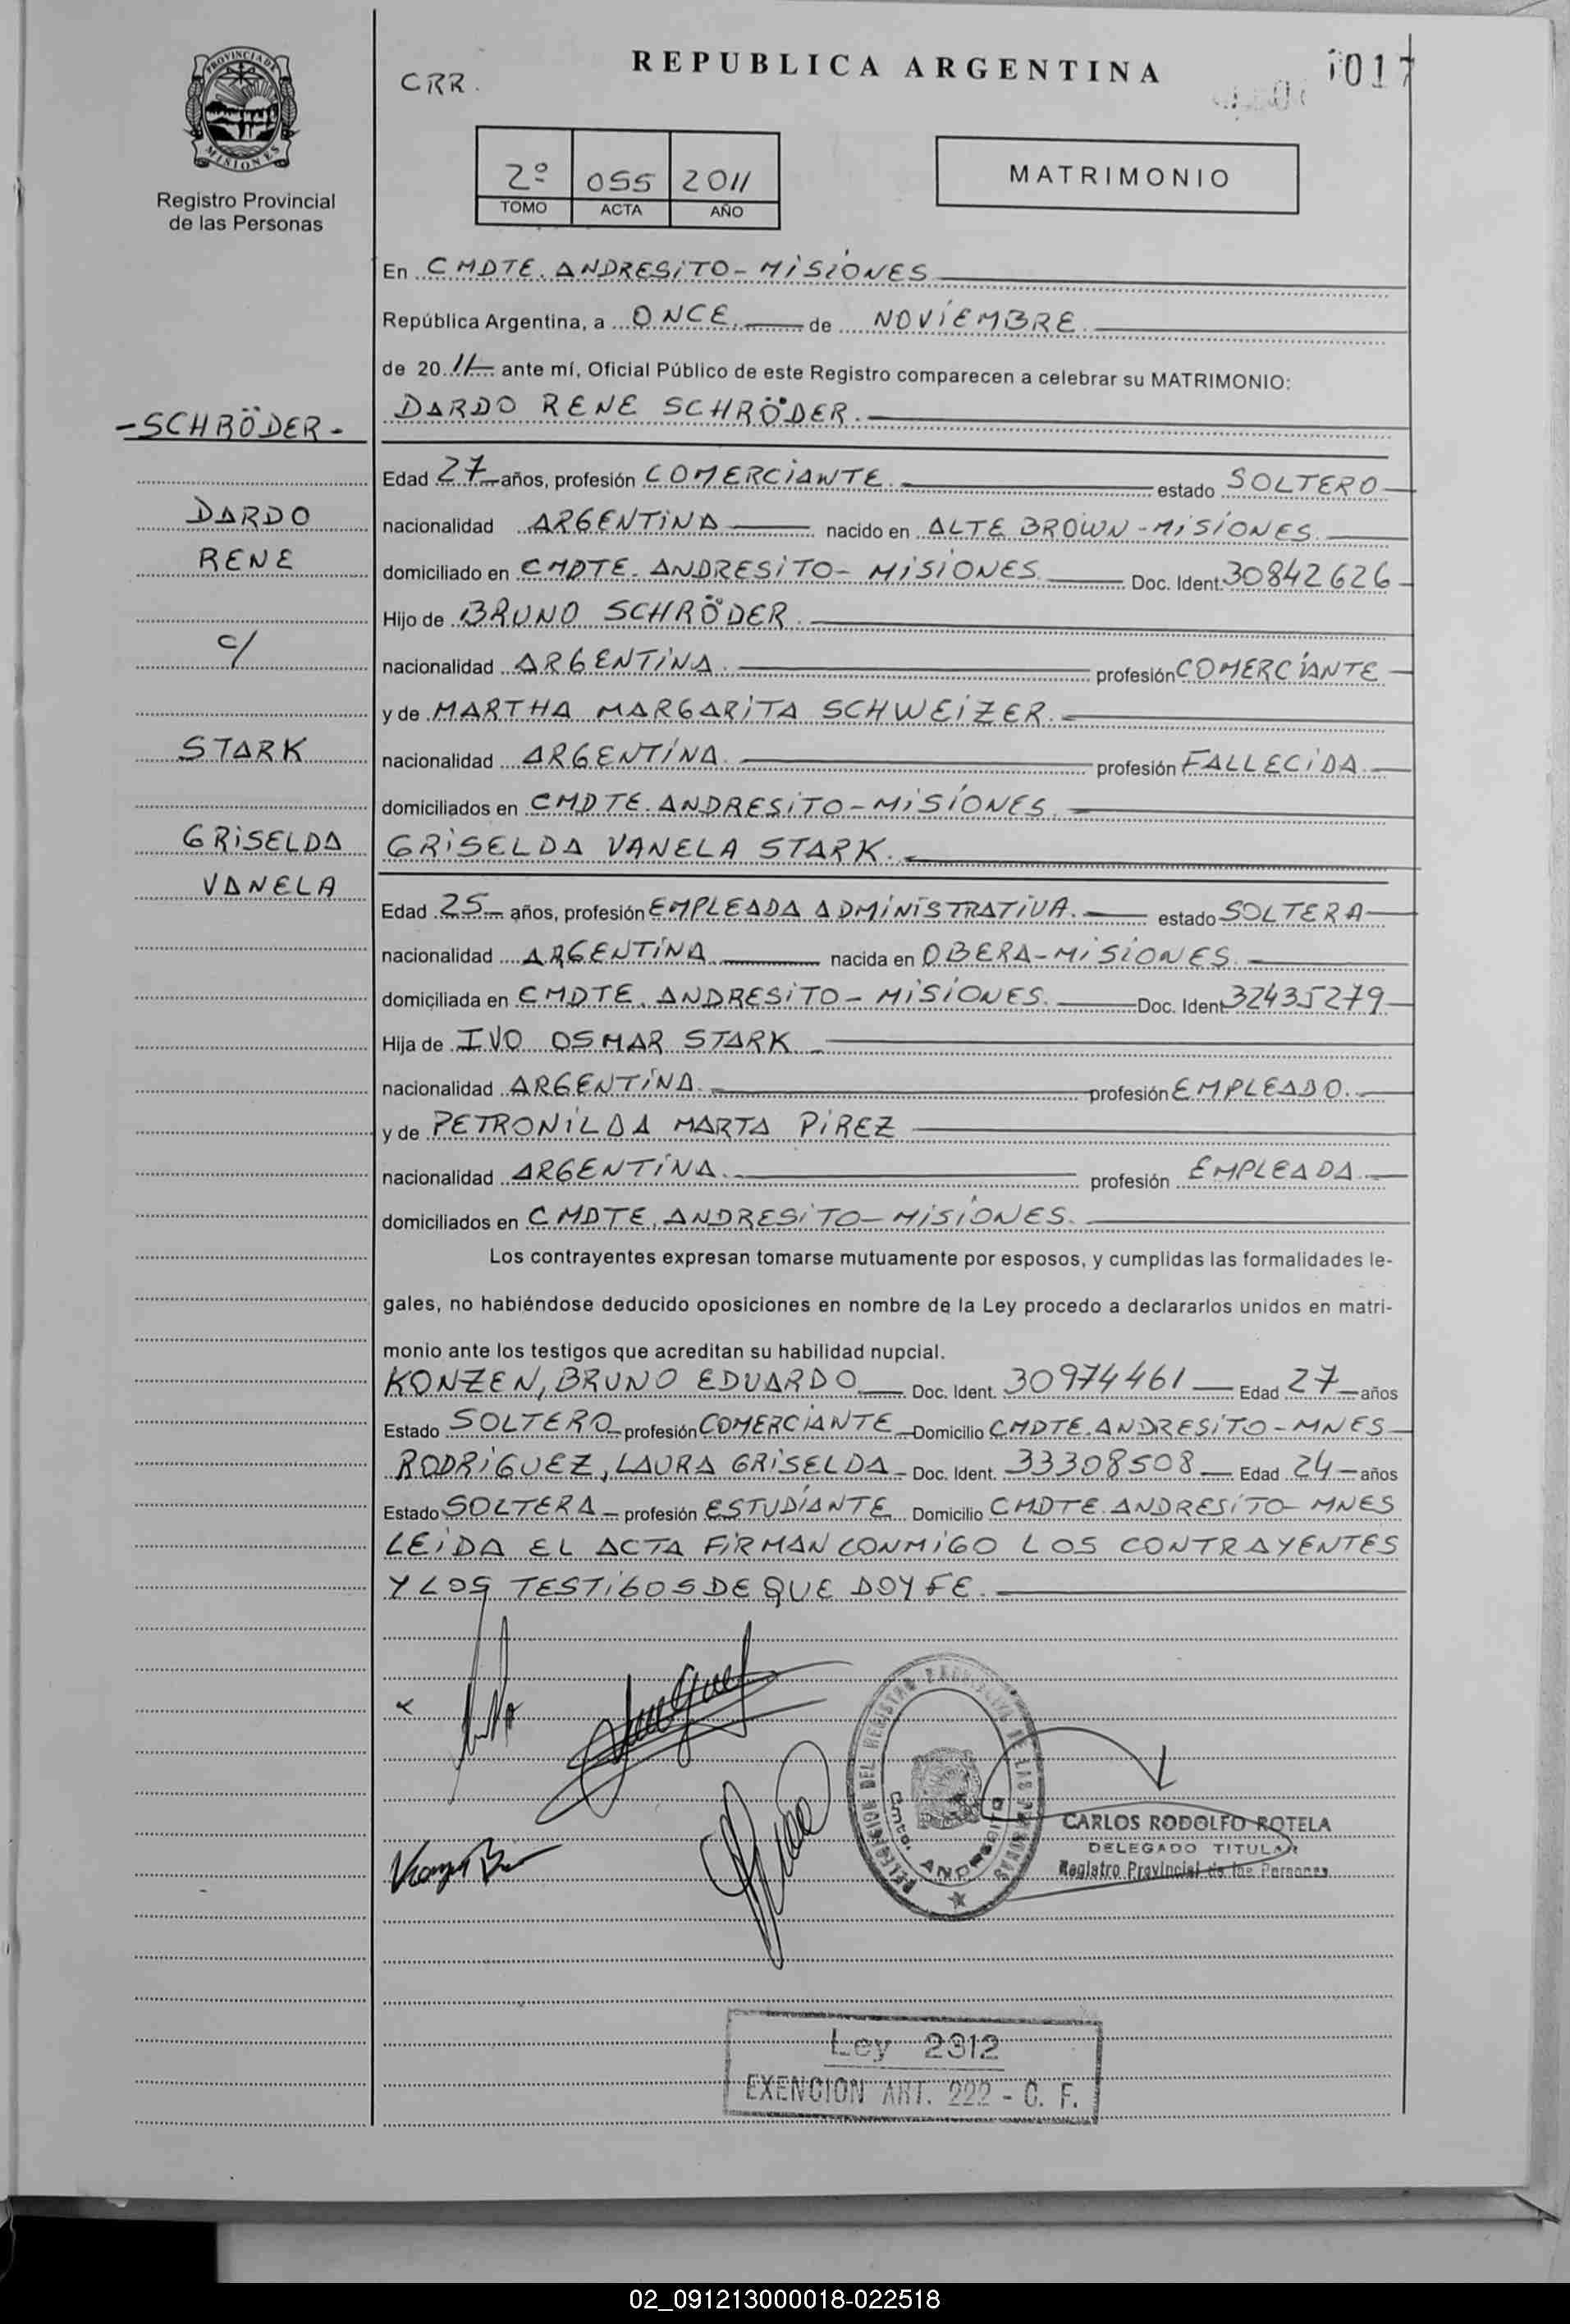 REPUBLICA ARGENTINA
1017
CRR.
PROVINCIA DE MISIONES
Registro Provincial
de las Personas
2º 055 2011
TOMO ACTA AÑO
MATRIMONIO
En CMDTE. ANDRESITO - MISIONES
República Argentina, a ONCE. de NOVIEMBRE.
de 2011 ante mí, Oficial Público de este Registro comparecen a celebrar su MATRIMONIO:
DARDO RENE SCHRÖDER.
-SCHRÖDER-
DARDO
RENE
c/
STARK
GRISELDA
VANELA
Edad 27 años, profesión COMERCIANTE. estado SOLTERO
nacionalidad ARGENTINA nacido en ALTE BROWN - MISIONES.
domiciliado en CMDTE. ANDRESITO - MISIONES. Doc. Ident. 30842626
Hijo de BRUNO SCHRÖDER.
nacionalidad ARGENTINA. profesión COMERCIANTE
y de MARTHA MARGARITA SCHWEIZER.
nacionalidad ARGENTINA. profesión FALLECIDA.
domiciliados en CMDTE. ANDRESITO - MISIONES.
GRISELDA VANELA STARK.
Edad 25 años, profesión EMPLEADA ADMINISTRATIVA. estado SOLTERA
nacionalidad ARGENTINA nacida en OBERA - MISIONES.
domiciliada en CMDTE. ANDRESITO - MISIONES. Doc. Ident. 32435279
Hija de IVO OSMAR STARK
nacionalidad ARGENTINA. profesión EMPLEADO.
y de PETRONILDA MARTA PIREZ
nacionalidad ARGENTINA. profesión EMPLEADA.
domiciliados en CMDTE. ANDRESITO - MISIONES.
Los contrayentes expresan tomarse mutuamente por esposos, y cumplidas las formalidades le-
gales, no habiéndose deducido oposiciones en nombre de la Ley procedo a declararlos unidos en matri-
monio ante los testigos que acreditan su habilidad nupcial.
KONZEN, BRUNO EDUARDO Doc. Ident. 30974461 Edad 27 años
Estado SOLTERO profesión COMERCIANTE Domicilio CMDTE. ANDRESITO - MNES
RODRIGUEZ, LAURA GRISELDA Doc. Ident. 33308508 Edad 24 años
Estado SOLTERA profesión ESTUDIANTE Domicilio CMDTE. ANDRESITO - MNES
LEIDA EL ACTA FIRMAN CONMIGO LOS CONTRAYENTES
Y LOS TESTIGOS DE QUE DOY FE.
DELEGACION DEL REGISTRO PROVINCIAL DE LAS PERSONAS
Cmte. ANDRESITO
CARLOS RODOLFO ROTELA
DELEGADO TITULAR
Registro Provincial de las Personas
Ley 2312
EXENCION ART. 222 - C. F.
02_091213000018-022518